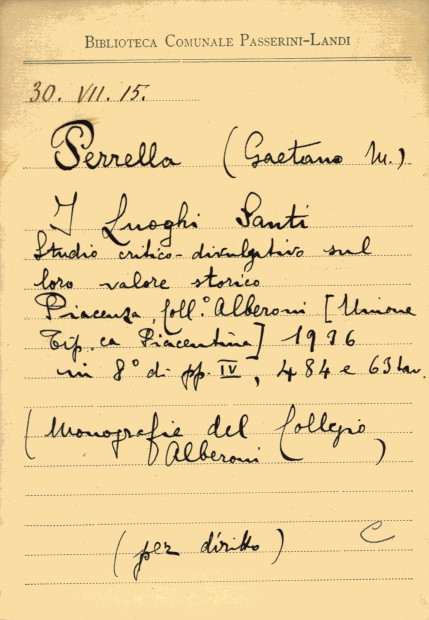 BIBLIOTECA COMUNALE PASSERINI-LANDI
30. VII. 15.
Perrella (Gaetano M.)
I Luoghi Santi
Studio critico-divulgativo sul
loro valore storico
Piacenza, Coll.° Alberoni [Unione
Tip.ca Piacentina] 1936
in 8° di pp. IV, 484 e 63 tav.
(Monografie del Collegio
Alberoni)
(per diritto) C